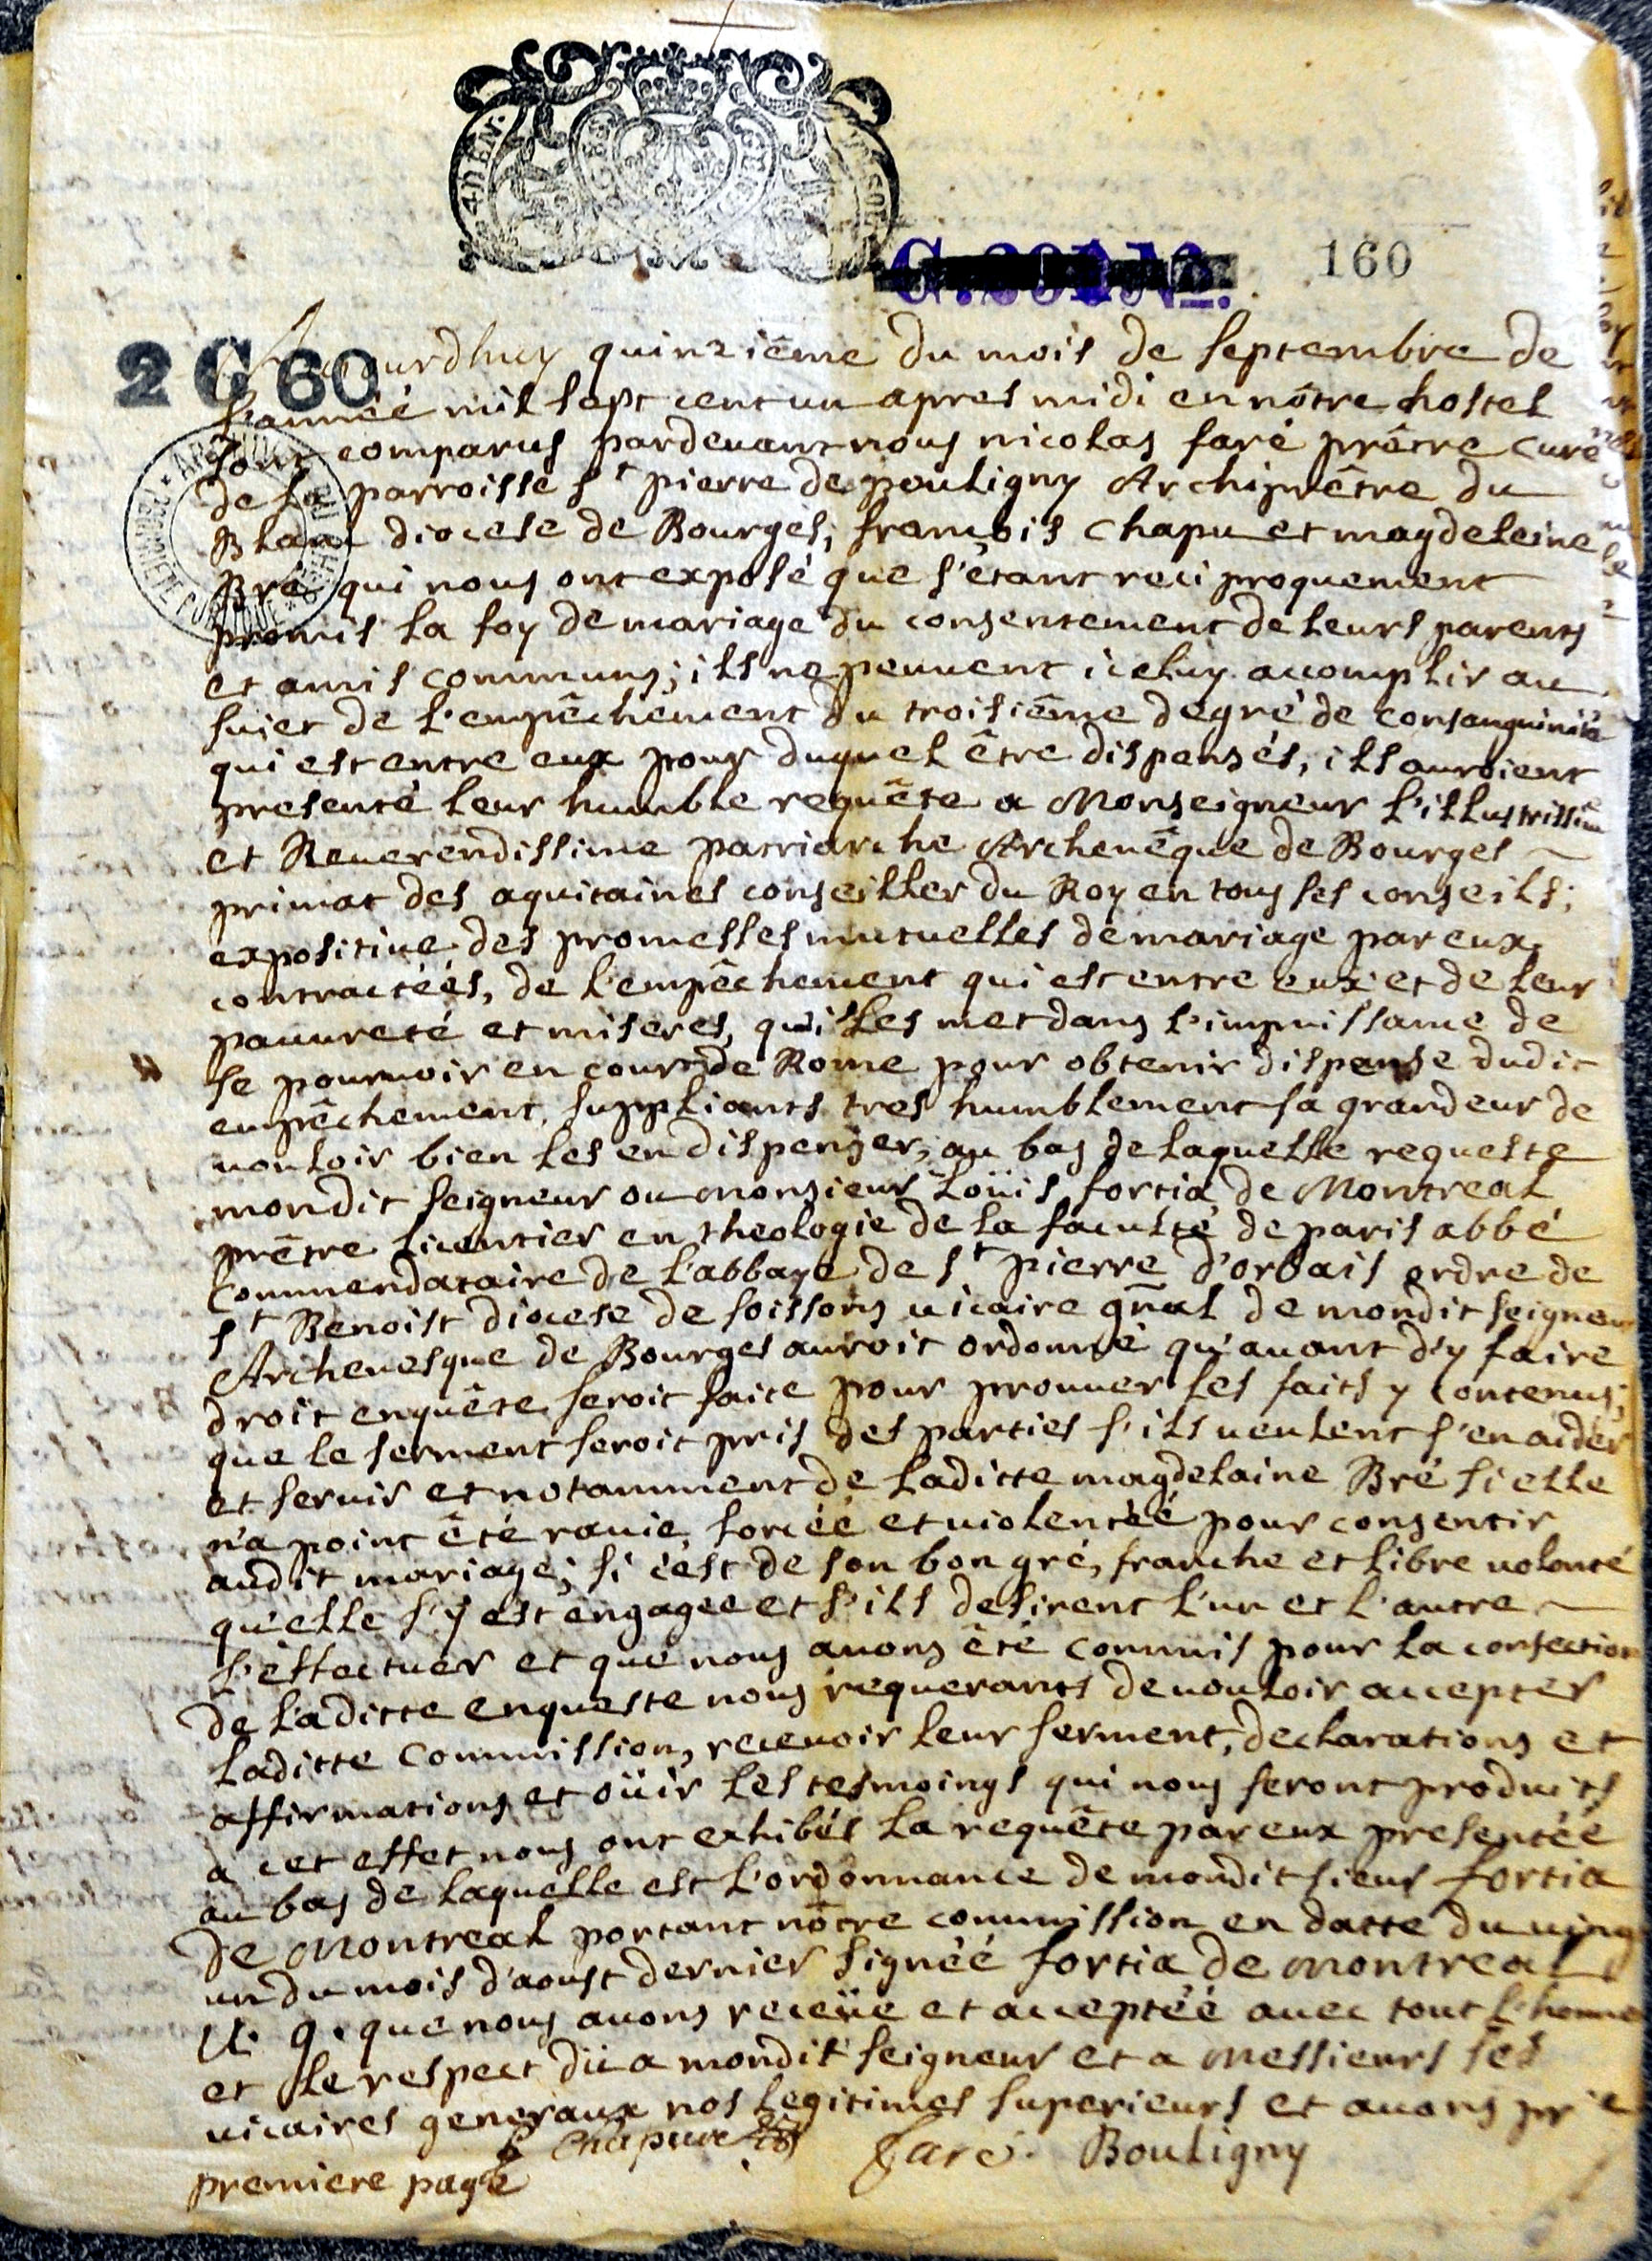 160
2 G 60
Aujourdhuy quinziême du mois de septembre de
l'annéé mil sept cent un apres midi en nôtre hostel
sont comparus pardeuant nous nicolas faré prêtre curé
de la parroisse st pierre de pouligny Archiprêtre du
Blanc diocese de Bourges; françois Chapu et magdeleine
Bré qui nous ont exposé que s'étant reciproquement
promis la foy de mariage du consentement de leurs parents
et amis communs; ils ne peuuent iceluy accomplir au
sujet de l'empêchement du troisiême degré de consanguinité
qui est entre eux pour duquel être dispensés, ils auroient
presenté leur humble requête a Monseigneur l'illustrissime
et Reuerendissime patriarche Archeuêque de Bourges
primat des aquitaines conseiller du Roy en tous ses conseils;
expositiue des promesses mutuelles de mariage par eux
contractéés, de l'empêchement qui est entre eux et de leur
pauureté et miseres, qui les met dans l'impuissance de
se pouruoir en cour de Rome pour obtenir dispense dudit
empêchement, suppliants tres humblement sa grandeur de
uouloir bien les en dispenser; au bas de laquelle requeste
mondit seigneur ou monsieur Loüis fortia de Montreal
prêtre licentier en theologie de la faculté de paris abbé
Commendataire de l'abbaye de st pierre d'orbais ordre de
st Benoist diocese de soissons uicaire gñal de mondit seigneur
Archeuesque de Bourges auroit ordonné qu'auant d'y faire
droit enquête seroit faite pour prouuer les faits y contenus;
que le serment seroit pris des parties s'ils ueulent s'en aider
et seruir et notamment de laditte magdelaine Bré si elle
n'a point êté rauie, forcéé et uiolentéé pour consentir
audit mariage; si c'est de son bon gré, franche et libre uolonté
qu'elle s'y est engagee et s'ils desirent l'un et l'autre
l'effectuer et que nous auons êté commis pour la confection
de laditte enqueste nous requerants de uouloir accepter
laditte Commission, receuoir leur serment, declarations et
affirmations et oüir les tesmoings qui nous seront produits
a cet effet nous ont exhibés la requête par eux presentéé
au bas de laquelle est l'ordonnance de mondit sieur fortia
de Montreal portant nôtre commission en datte du uingt
un du mois d'aoust dernier signéé fortia de montreal
U. G. que nous auons receüe et acceptéé auec tout l'honneur
et le respect dü a mondit seigneur et a Messieurs ses
uicaires generaux nos legitimes superieurs et auons pris
f Chapu faré. Bouligny
premiere page